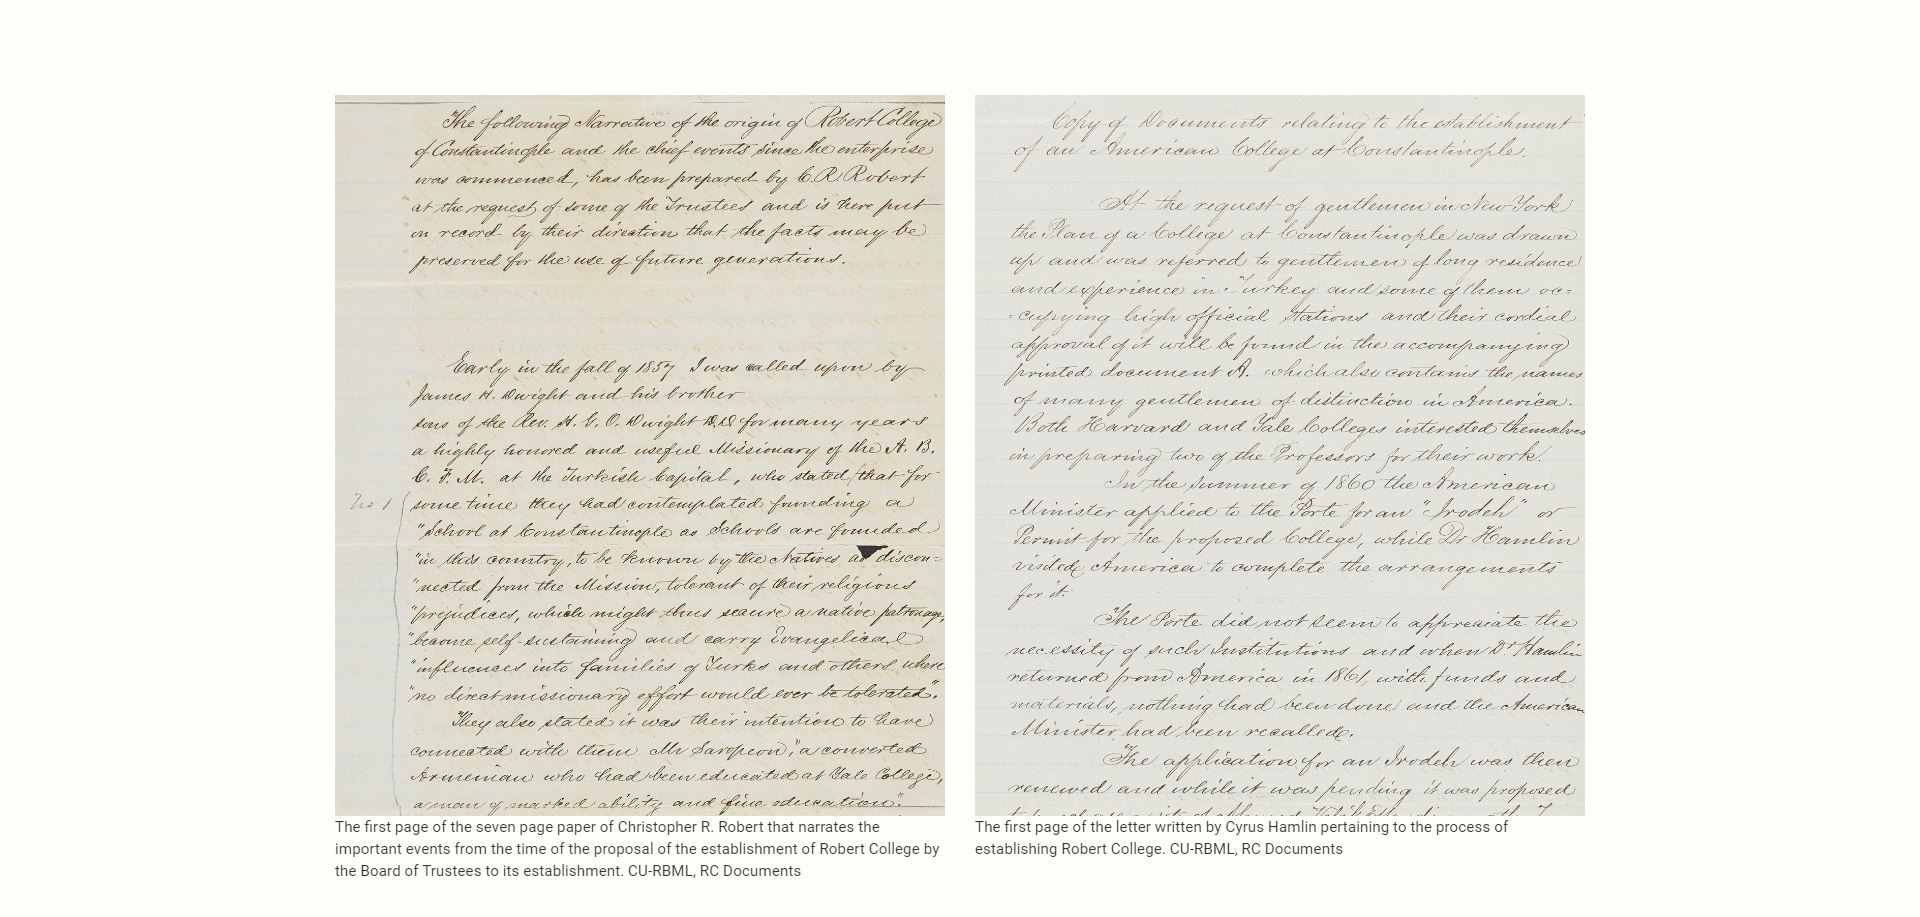 The following Narrative of the origin of Robert College
of Constantinople and the chief events since the enterprise
was commenced, has been prepared by C. R. Robert
at the request of some of the Trustees and is here put
on record by their direction that the facts may be
preserved for the use of future generations.
Early in the fall of 1857 I was called upon by
James H. Dwight and his brother
sons of the Rev. H. G. O. Dwight D.D. for many years
a highly honored and useful Missionary of the A. B.
C. F. M. at the Turkish Capital, who stated that for
No 1
some time they had contemplated founding a
"School at Constantinople as Schools are founded
"in this country, to be known by the Natives as discon-
"nected from the Mission, tolerant of their religious
"prejudices, which might thus secure a native patronage,
"become self-sustaining and carry Evangelical
"influences into families of Turks and others where
"no direct missionary effort would ever be tolerated".
They also stated it was their intention to have
connected with them Mr "a converted
Armenian who had been educated at Yale College,
a man of marked ability and fine education".
The first page of the seven page paper of Christopher R. Robert that narrates the
important events from the time of the proposal of the establishment of Robert College by
the Board of Trustees to its establishment. CU-RBML, RC Documents
Copy of Documents relating to the establishment
of an American College at Constantinople.
At the request of gentlemen in New York
the Plan of a College at Constantinople was drawn
up and was referred to gentlemen of long residence
and experience in Turkey and some of them oc=
=cupying high official stations and their cordial
approval of it will be found in the accompanying
printed document A. which also contains the names
of many gentlemen of distinction in America.
Both Harvard and Yale Colleges interested themselves
in preparing two of the Professors for their work.
In the summer of 1860 the American
Minister applied to the Porte for an "Irodeh" or
Permit for the proposed College, while Dr Hamlin
visited America to complete the arrangements
for it.
The Porte did not seem to appreciate the
necessity of such Institutions and when Dr Hamlin
returned from America in 1861, with funds and
materials, nothing had been done and the American
Minister had been recalled.
The application for an Irodeh was then
renewed and while it was pending it was proposed
The first page of the letter written by Cyrus Hamlin pertaining to the process of
establishing Robert College. CU-RBML, RC Documents